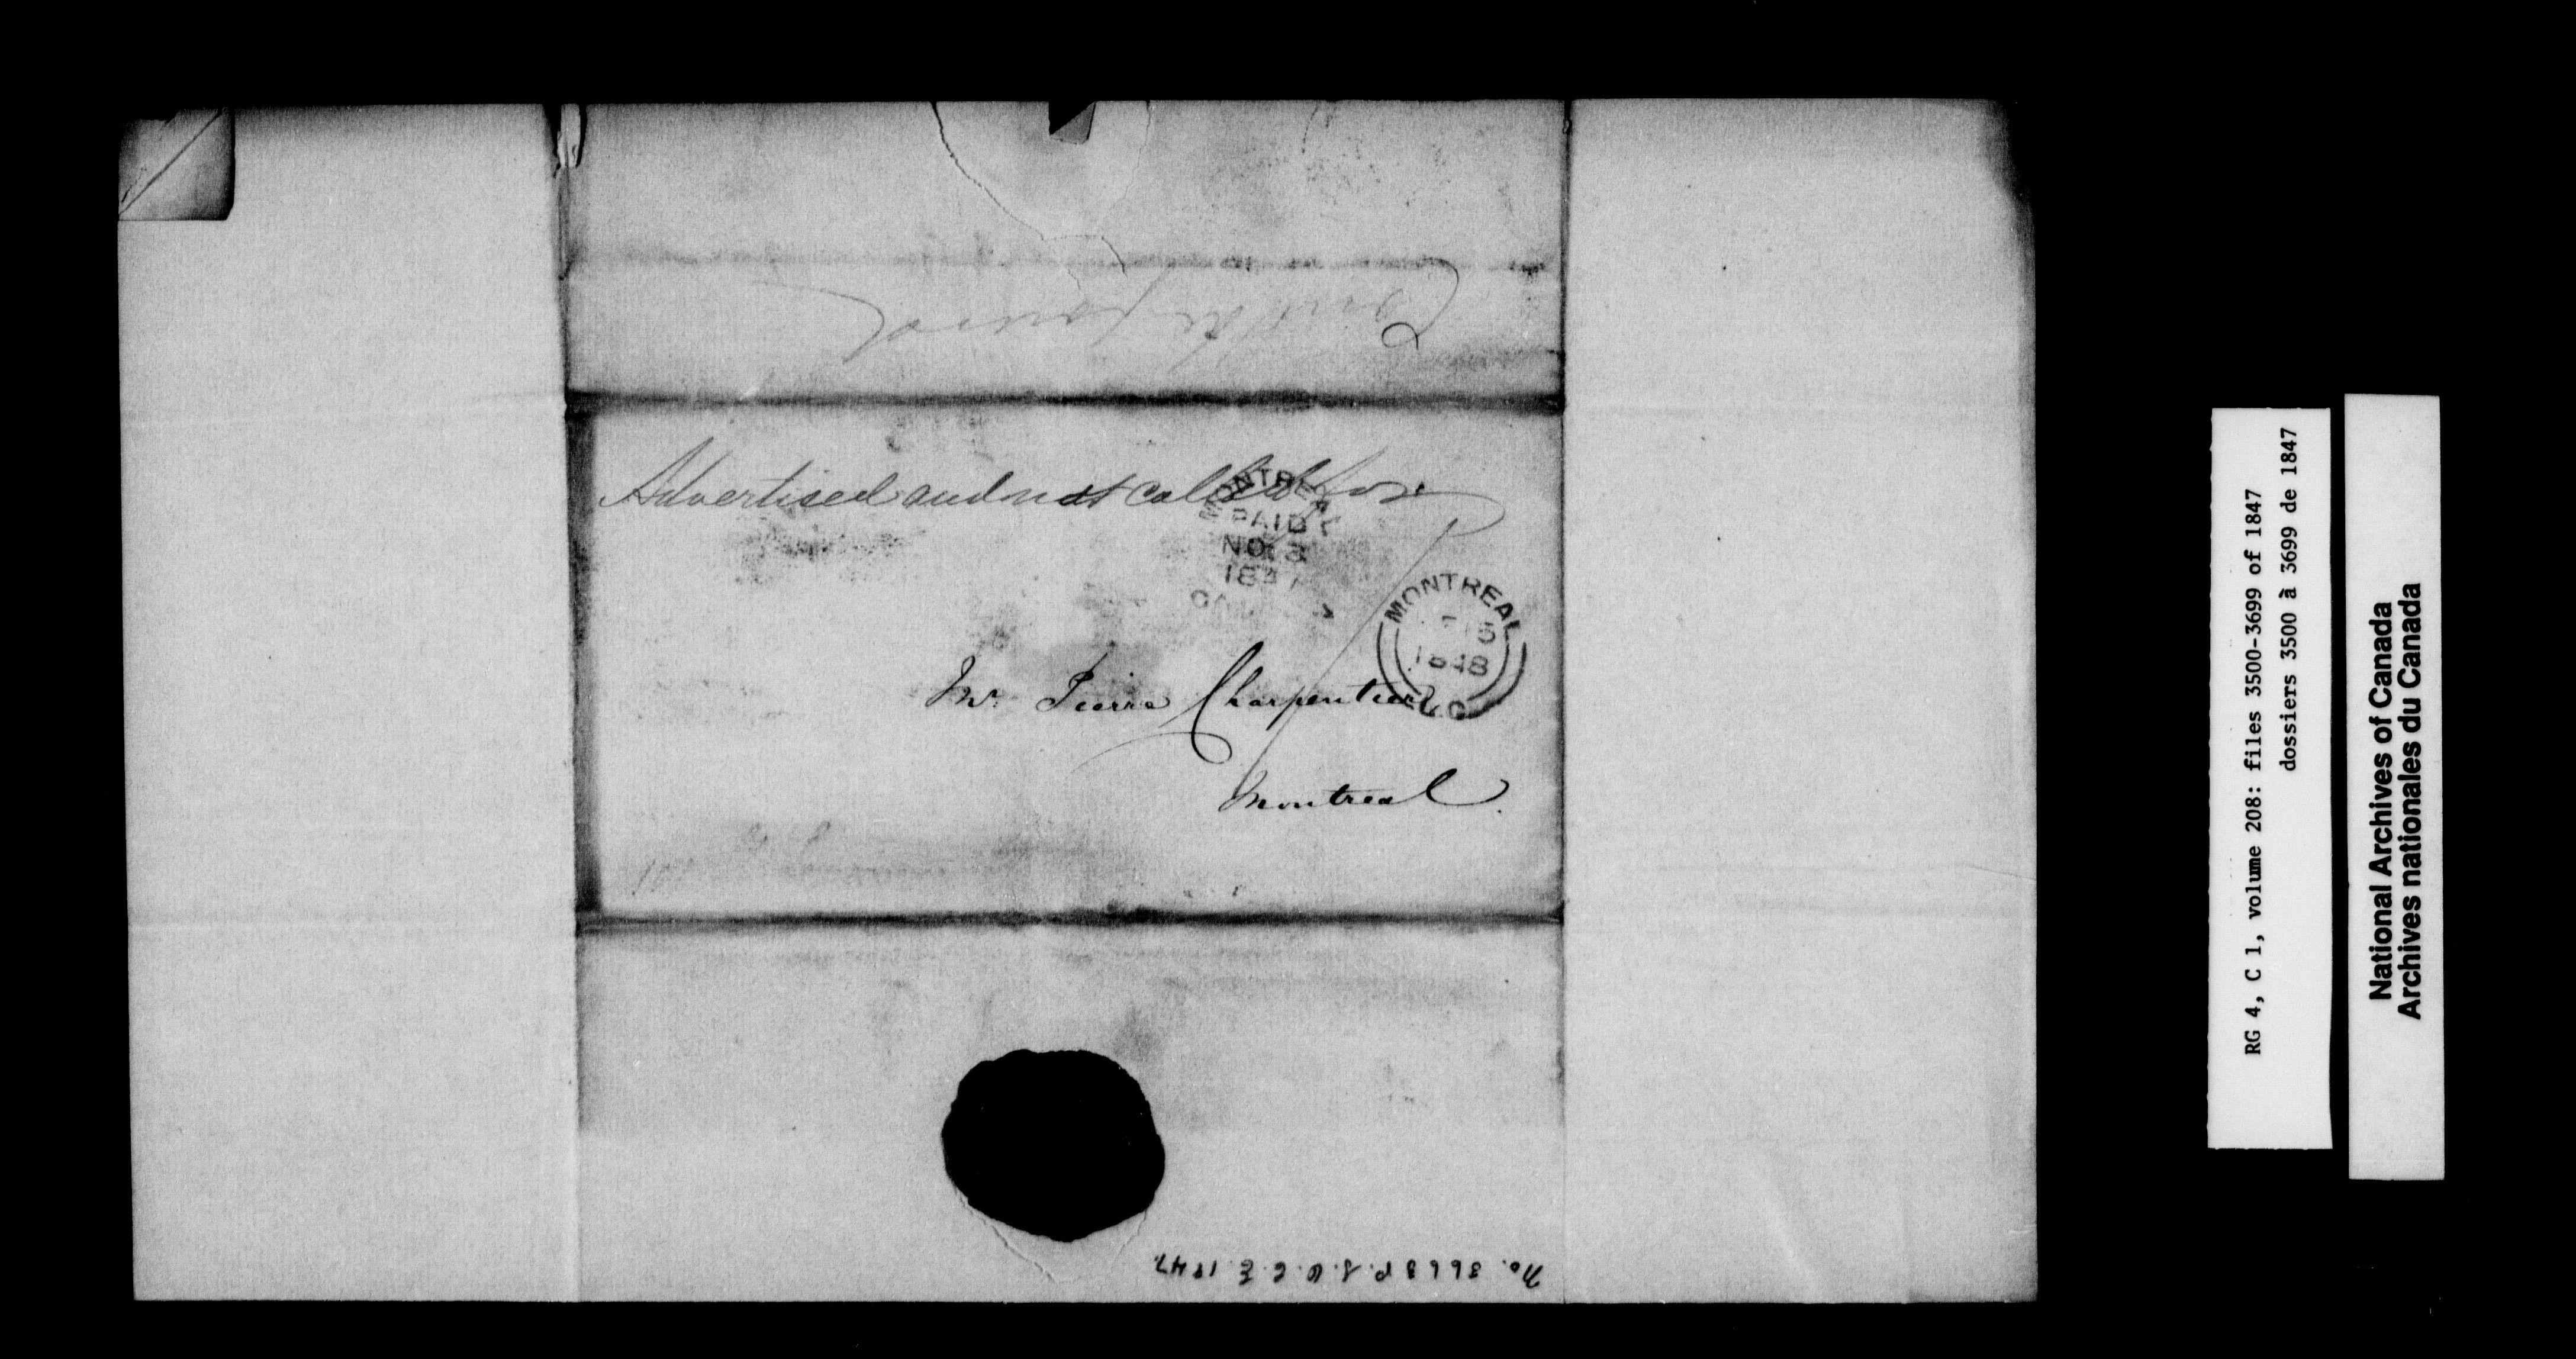 Can't be found
Advertised and not called for
MONTREAL
PAID
NO 3
1847
MONTREAL
15
1848
L.C.
Mr. Pierre Charpentier
Montreal
No. 3668 P.S.O.C.E. 1847.
RG 4, C 1, volume 208: files 3500-3699 of 1847
dossiers 3500 à 3699 de 1847
National Archives of Canada
Archives nationales du Canada